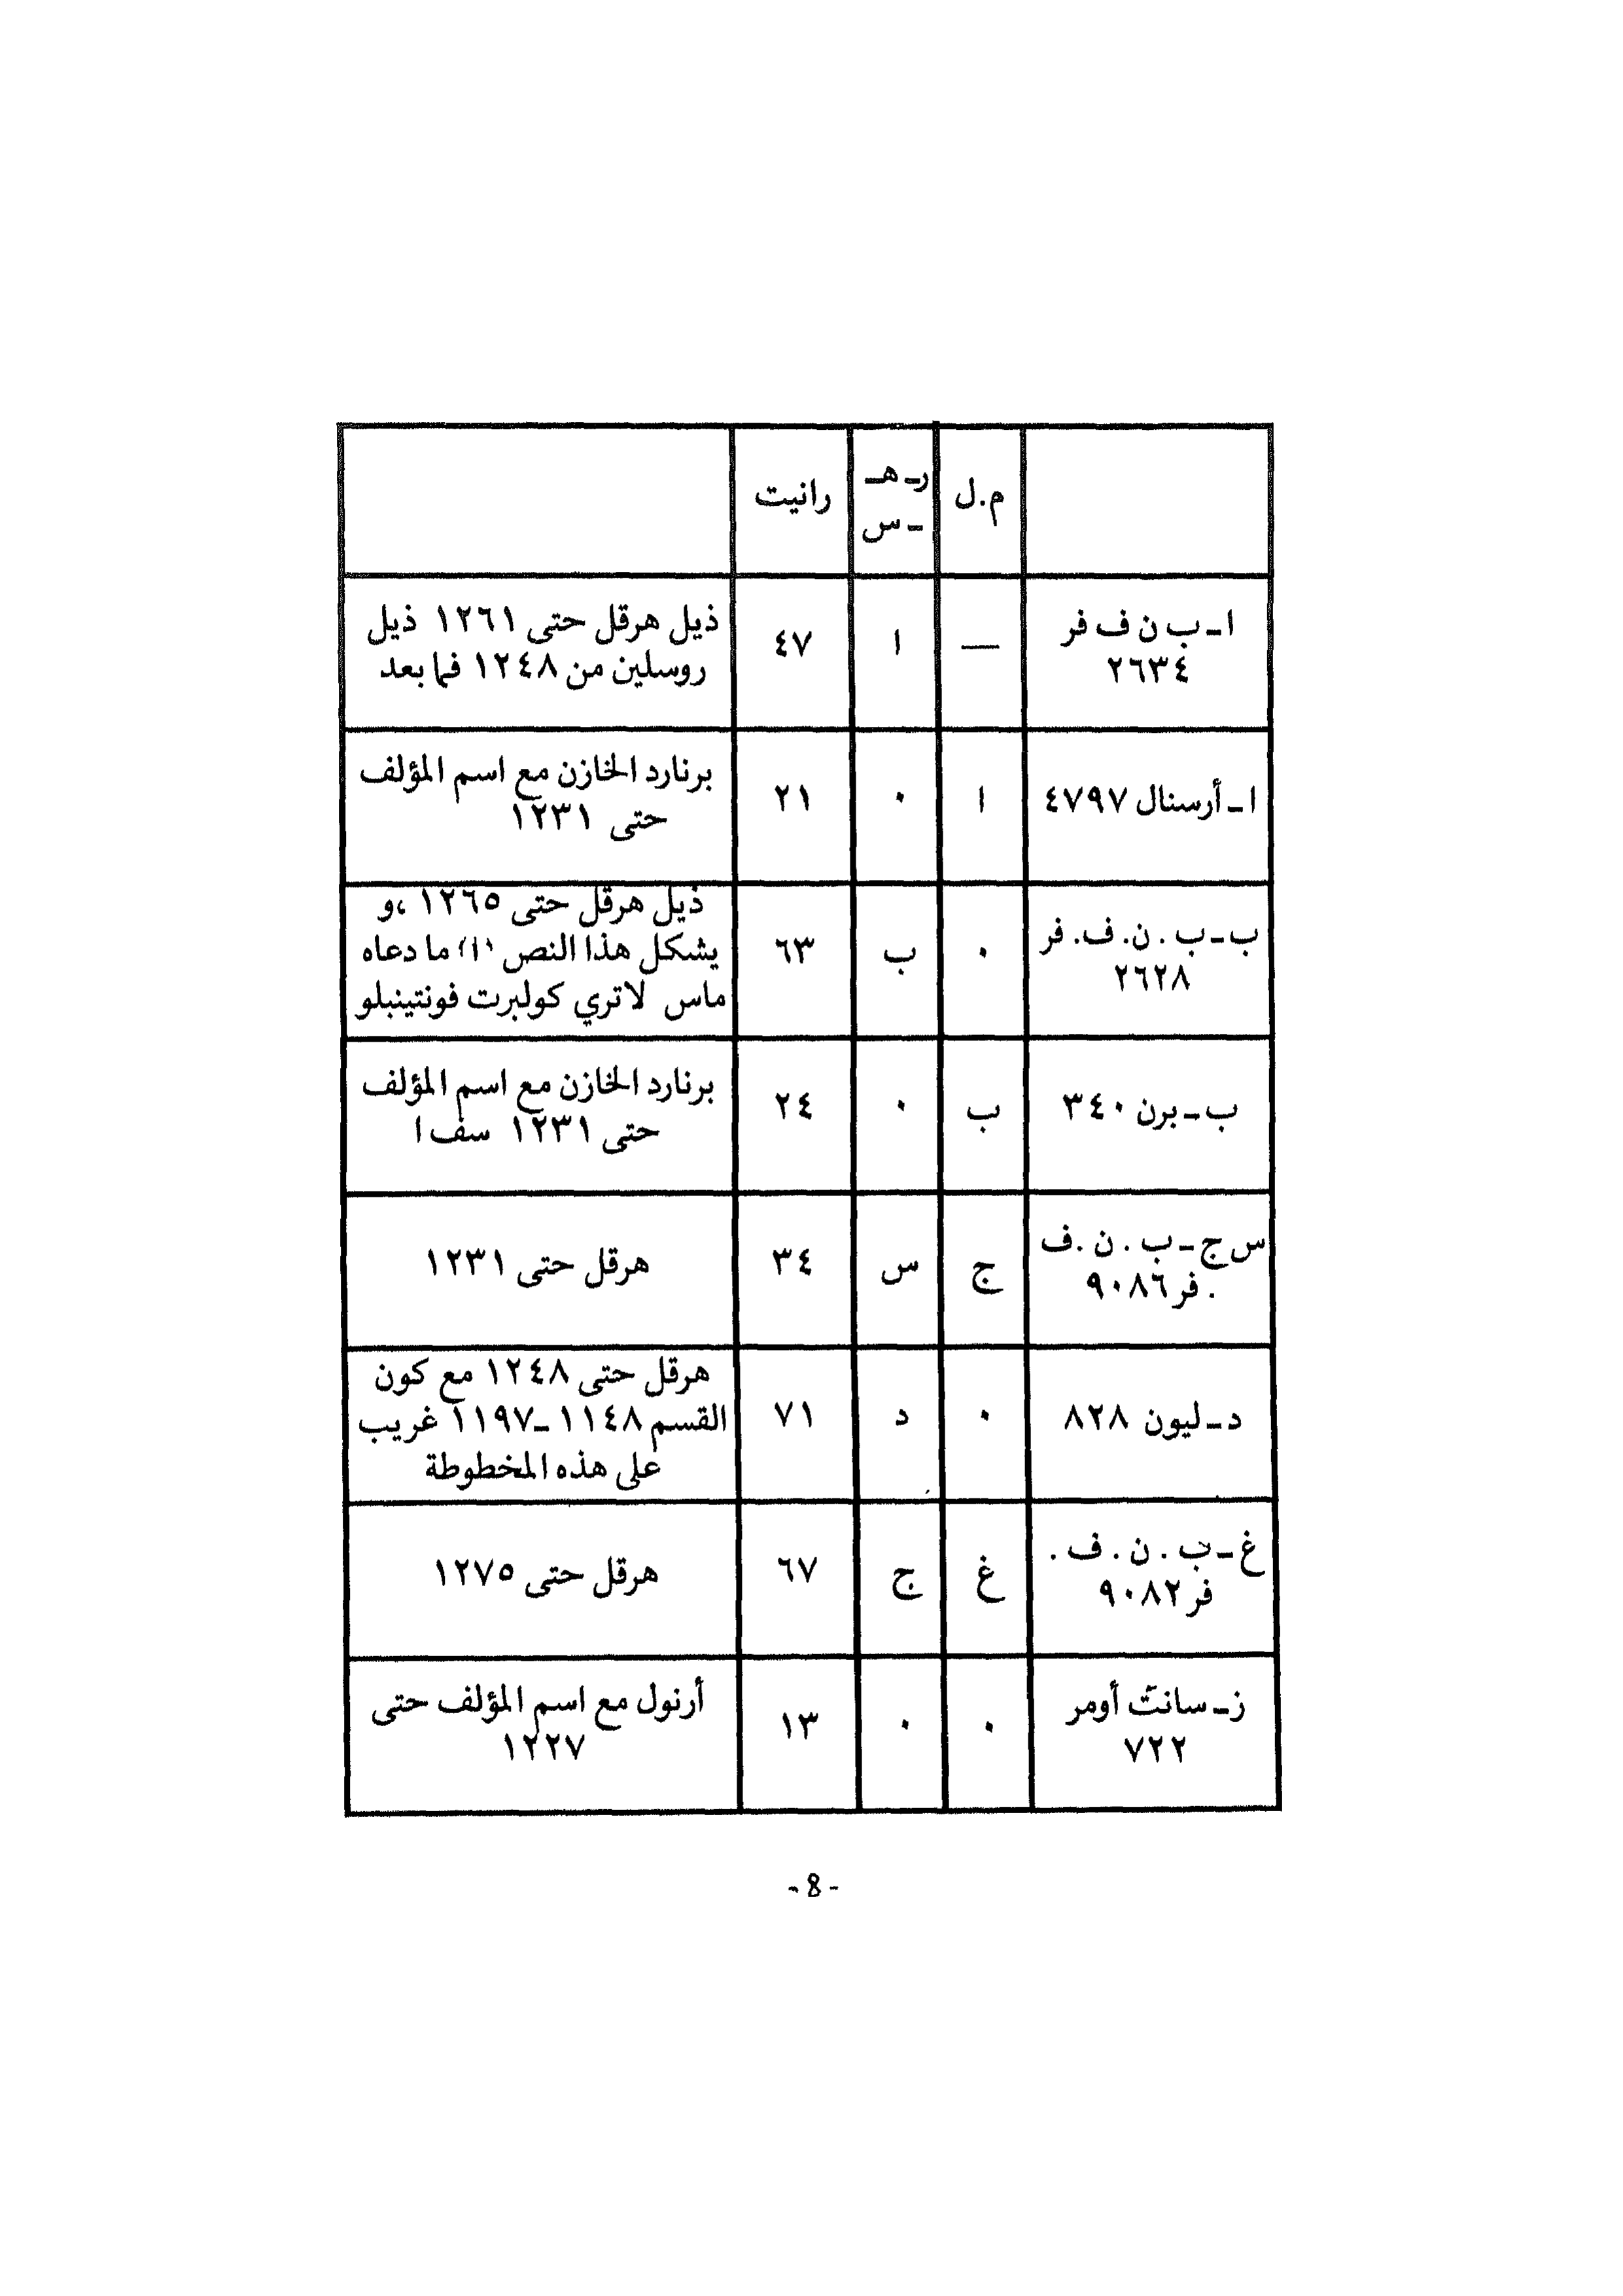 م.ل
رـ هـ
ـ س
رانيت
ا ـ ب ن ف فر
٢٦٣٤
—
ا
٤٧
ذيل هرقل حتى ١٢٦١ ذيل
روسلين من ١٢٤٨ فما بعد
ا ـ أرسنال ٤٧٩٧
ا
٠
٢١
برنارد الخازن مع اسم المؤلف
حتى ١٢٣١
ب ـ ب . ن. ف. فر
٢٦٢٨
٠
ب
٦٣
ذيل هرقل حتى ١٢٦٥ ،و
يشكل هذا النص (١) ما دعاه
ماس لاتري كولبرت فونتينبلو
ب ـ برن ٣٤٠
ب
٠
٢٤
برنارد الخازن مع اسم المؤلف
حتى ١٢٣١ سف ا
س ج ـ ب . ن .ف
. فر ٩٠٨٦
ج
س
٣٤
هرقل حتى ١٢٣١
د ـ ليون ٨٢٨
٠
د
٧١
هرقل حتى ١٢٤٨ مع كون
القسم ١١٤٨ ـ ١١٩٧ غريب
على هذه المخطوطة
غ ـ ب . ن . ف .
فر ٩٠٨٢
غ
ج
٦٧
هرقل حتى ١٢٧٥
ز ـ سانت أومر
٧٢٢
٠
٠
١٣
أرنول مع اسم المؤلف حتى
١٢٢٧
- 8 -